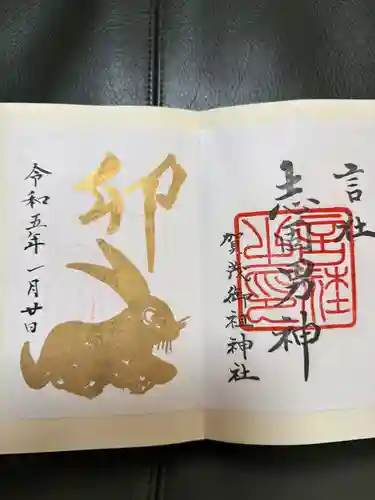 言社
志固男神
賀茂御祖神社
卯
令和五年一月廿日